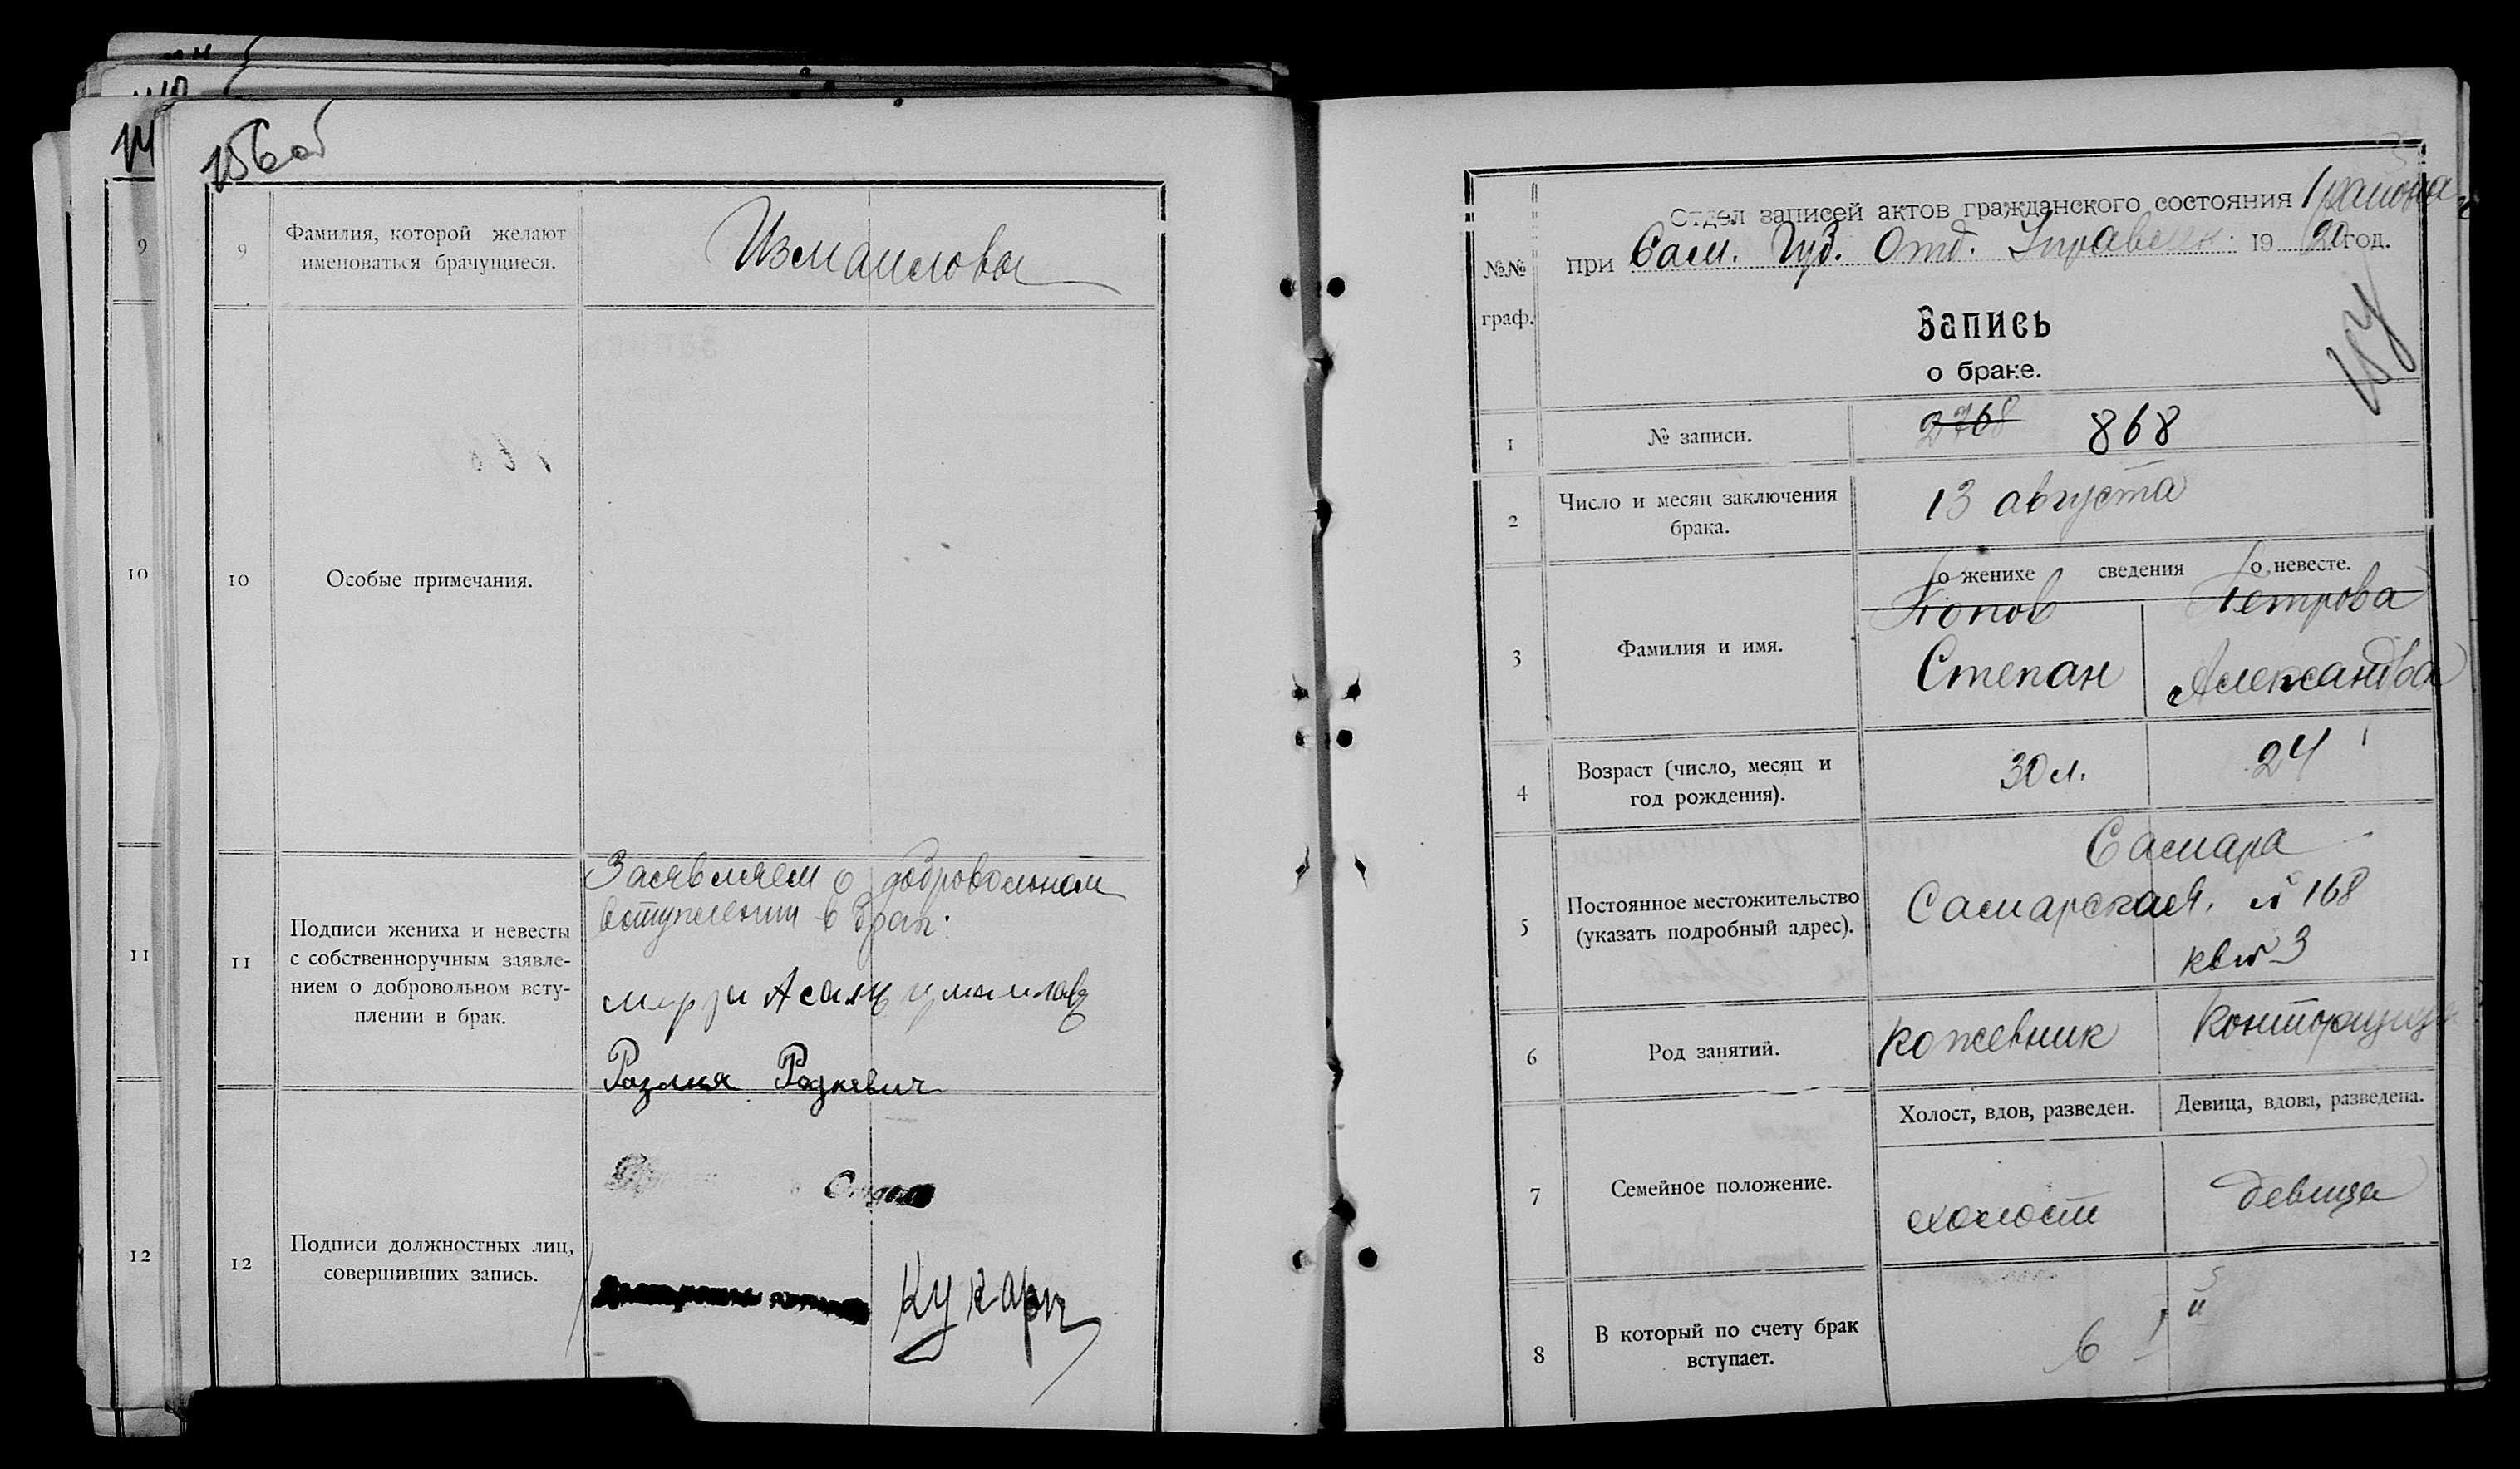 156 об
9
Фамилия, которой желают
именоваться брачущиеся.
Измаиловы
10
Особые примечания.
11
Подписи жениха и невесты
с собственноручным заявле-
нием о добровольном всту-
плении в брак.
Заявляем о добровольном
вступлении в брак:
Разлия Радкевич
12
Подписи должностных лиц,
совершивших запись.
9
10
11
12
№№
граф.
Отдел записей актов гражданского состояния 1 района
при Сам. Губ. Отд. Управлен. 1920 год.
Запись
о браке.
157
1
№ записи.
2768 868
2
Число и месяц заключения
брака.
13 августа
о женихе сведения о невесте.
3
Фамилия и имя.
Попов Петрова
Степан Александра
4
Возраст (число, месяц и
год рождения).
30 л. 24
5
Постоянное местожительство
(указать подробный адрес).
Самара
Самарская, № 168
кв № 3
6
Род занятий.
кожевник конторщица
7
Семейное положение.
Холост, вдов, разведен. Девица, вдова, разведена.
холост девица
8
В который по счету брак
вступает.
в I й